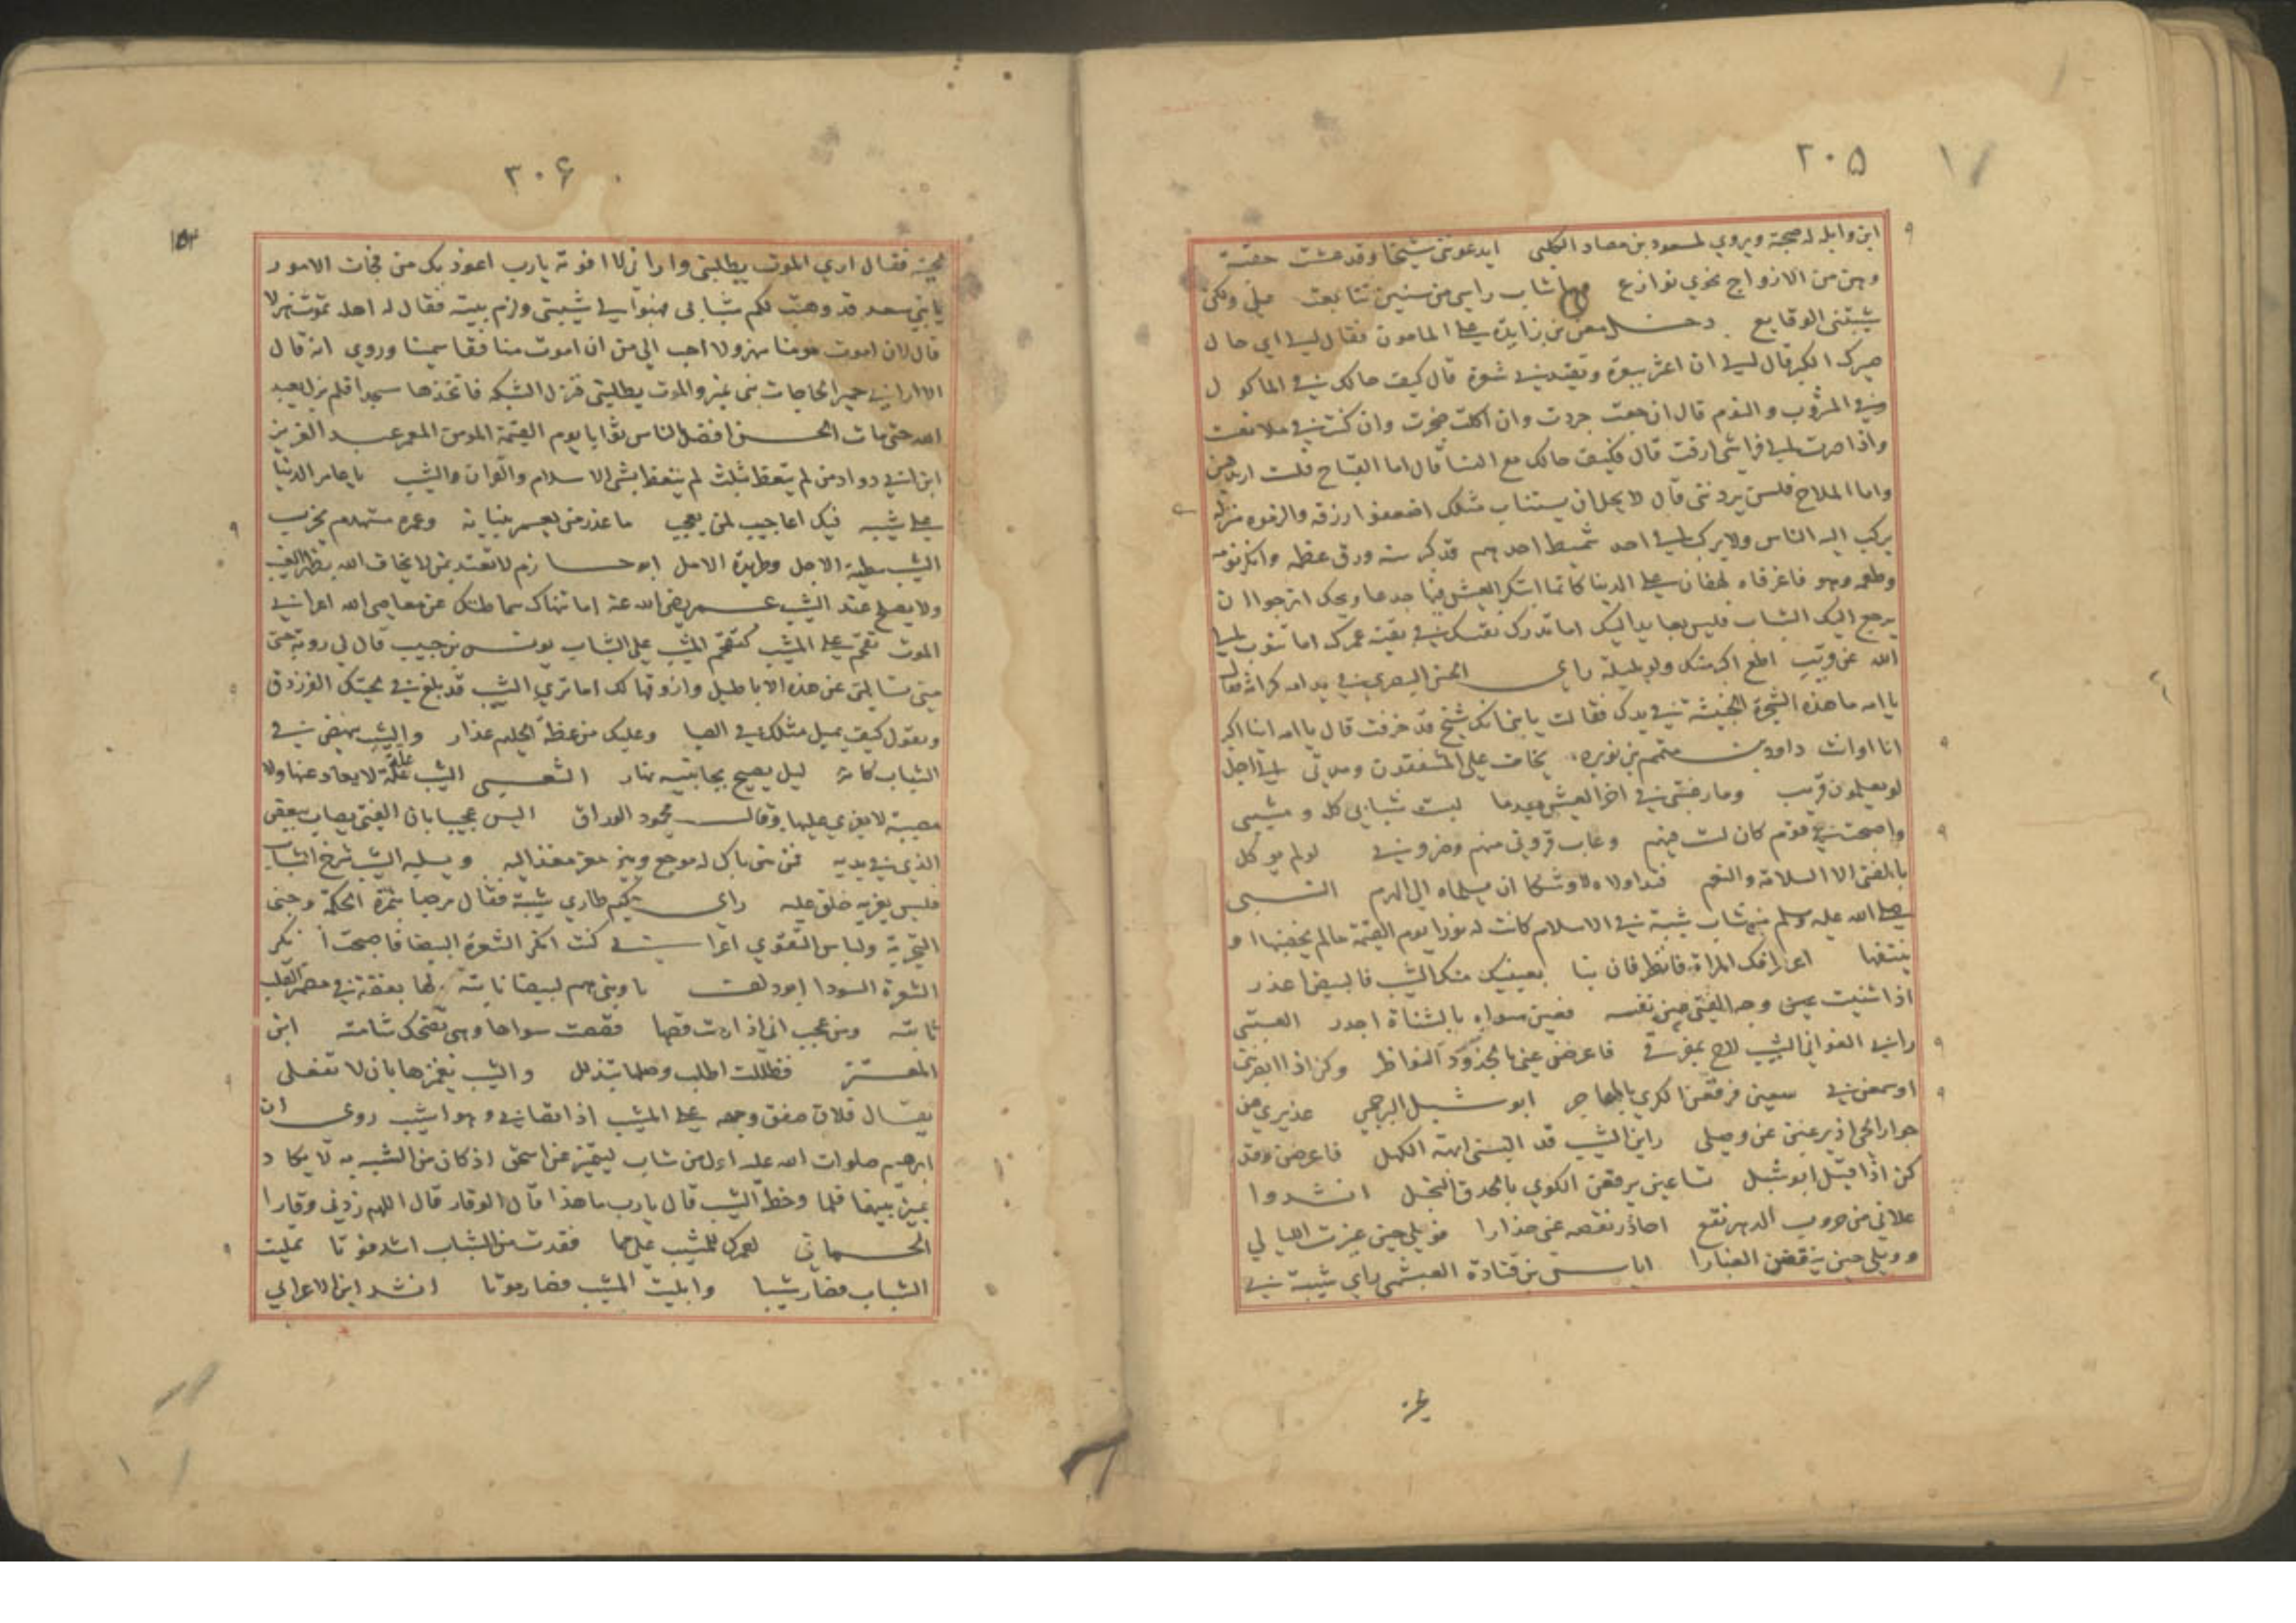 ٢٠۵
ابن وابله له صحبة ويروي لمسعود بن مصاد الكلبي ايدعونني شيخا وقد عشت حقبة
وهن من الازواج نحوي نوازع وما شاب راسي من سنين تتابعت علي ولكن
شيبتني الوقايع دخل معن بن زايدة على المامون فقال له الى اي حال
صيرك الكبر قال الى ان اعثر ببعرة وتقيدني شعرة قال كيف حالك في الماكول
والمشروب والنوم قال ان جعت جردت وان اكلت ضجرت وان كنت في ملا نعست
واذا صرت الى فراشي ارقت قال فكيف حالك مع النسا قال اما القباح فلست اريدهن
واما الملاح فلسن يردنني قال لا يحل ان يستناب مثلك اضعفوا ارزقه والزموه منزله
يركب اليه الناس ولا يركب الى احد شميط احدهم قد كبر سنه ورق عظمه وانكر نومه
وطعمه وهو لهفان على الدنيا كانما ابتكر العيش فيها جدعا ويحك اترجو ان
يرجع اليك الشباب فليس بعايد اليك اما تدرك نفسك في بقية عمرك اما تتوب الى
الله عن قريب اطع اكبر منك ولو بليلة راى الحسن البصري في يد امه كراثة فقال
يا امه ما هذه الشجرة الخبيثة في يدك فقالت يا بني انك شيخ قد خرفت قال يا امه اينا اكبر
انا او انت داود بن متمم بن نويرة يخاف علي المشفقون وميتي الى اجل
لو يعلمون قريب وما رغبتي في اخر العيش بعدما لبست شبابي كله ومشيبي
واصبحت في قوم كان لست منهم وغاب قروني منهم وضروبي لو لم يوكل
بالفتى الا السلامة والنعم فتداولاه لاوشكا ان يسلماه الى الهرم النبي
صلى الله عليه وسلم من شاب شيبة في الاسلام كانت له نورا يوم القيمة ما لم يخضبها او
ينتفها اعرافك المراة فانظر فان نبا بعينيك منك الشيب فالبيض اعذر
اذا شنيت عين وجه الفتى من نفسه فعين سواه بالشناة اجدر العتبي
راين الغواني الشيب لاح بمفرقي فاعرضن عني بالخدود النواظر وكن اذا ابصرنني
او سمعن بي سعين فرقعن الكوى بالمحاجر ابو شبل البرجمي عذيري من
جوار الحي اذ يرغبن عن وصلي راين الشيب قد البسني ابهة الكهل فاعرضن وقد
كن اذا قيل ابو شبل تساعين يرقعن الكوى بالحدق النجل انشدوا
علاني من حروب الدهر نقع احاذر نقصه عني حذارا فويلي حين عزت الليالي
وويلي حين ينفضن الغبارا اياس بن قتادة العبشمي راى شيبة في
٣٠۶
١۵٣
لحيته فقال ارى الموت يطلبني واراني لا افوته يا رب اعوذ بك من فجات الامور
يا بني سعد قد وهبت لكم شبابي فهبوا لي شيبتي ولزم بيته فقال له اهله تموت هزلا
قال لان اموت مومنا مهزولا احب الي من ان اموت منافقا سمينا وروي انه قال
الا اراني حمير الحاجات بني تميم والموت يطلبني فنزل الشبكة فاتخذها مسجدا فلم يزل يعبد
الله حتى مات الحسن افضل الناس ثوابا يوم القيمة المومن المعمر عبد العزيز
ابن ابي رواد من لم يتعظ بثلث لم يتعظ بشي الاسلام والقران والشيب يا عامر الدنيا
على شيبه فيك اعاجيب لمن يعجب ما عذر من يعمر بنيانه وعمره مستهدم يخرب
الشيب مطية الاجل وطاردة الامل ابو حازم لا تعتد بمن لا يخاف الله بظهر الغيب
ولا يصلح عند الشيب عمر رضي الله عنه اما تنهاك سماطتك عن معاصي الله اعرابي
الموت تقحم على المشيب كتقحم المشيب على الشباب يونس بن حبيب قال لي روبة حتى
متى تسالني عن هذه الاباطيل وازوقها لك اما ترى الشيب قد بلغ في لحيتك الفرزدق
وتقول كيف يميل مثلك في الصبا وعليك من عظة الحليم عذار والشيب ينهض في
الشباب كانه ليل يصيح بجانبيه نهار الشعبي الشيب علة لا يعاد عنها ولا
مصيبة لا يعزى عليها وقال محمود الوراق اليس عجيبا بان الفتى يصاب ببعض
الذي في يديه فمن بين باك له موجع وبين معز مغذ اليه ويسلبه الشيب شرخ الشباب
فليس يعزيه خلق عليه راى حكيم طاري شيبة فقال مرحبا بثمرة الحكمة وجنى
التجربة ولباس التقوى اعرابي كنت انكر الشعرة البيضا فاصبحت انكر
الشعرة السودا ابو دلف يا وهني هم لبيضا نابتة لها بغضة في مضمر القلب
ثابتة ومن عجب اني اذا رمت قصها قصصت سواها وهي تضحك شامتة ابن
المعتز فظللت اطلب وصلها بتذلل والشيب يغمزها بان لا تفعلي
يقال فلان صفق وجهه على المشيب اذا تصابى وهو اشيب روى ان
ابرهيم صلوات الله عليه اول من شاب ليتميز عن اسحق اذ كان من الشبه به لا يكاد
يميز بينهما فلما وخطه الشيب قال يا رب ما هذا قال الوقار قال اللهم زدني وقارا
الحماني لعمرك للمشيب علي مما فقدت من الشباب اشد فوتا تمليت
الشباب فصار شيبا وابليت المشيب فصار موتا انشد ابن الاعرابي